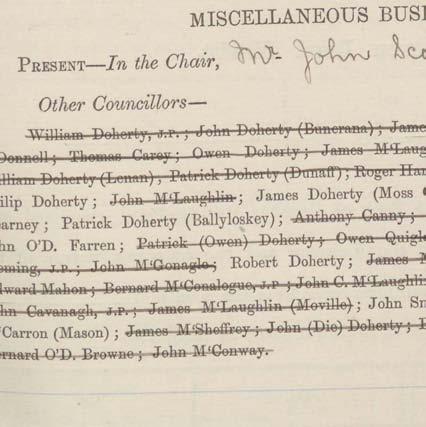 MISCELLANEOUS BUSI
PRESENT—In the Chair, Mr John Sco
Other Councillors—
William Doherty, J.P.; John Doherty (Buncrana); Jame
Donnell; Thomas Carey; Owen Doherty; James M'Laug
illiam Doherty (Lenan), Patrick Doherty (Dunaff); Roger Har
ilip Doherty; John M'Laughlin; James Doherty (Moss
arney; Patrick Doherty (Ballyloskey); Anthony Canny;
hn O'D. Farren; Patrick (Owen) Doherty; Owen Quigle
eming, J.P.; John M'Gonagle; Robert Doherty; James M
dward Mahon; Bernard M'Conalogue, J.P; John C. M'Laughlin
hn Cavanagh, J.P.; James M'Laughlin (Moville); John Sm
'Carron (Mason); James M'Sheffrey; John (Die) Doherty;
ernard O'D. Browne; John M'Conway.